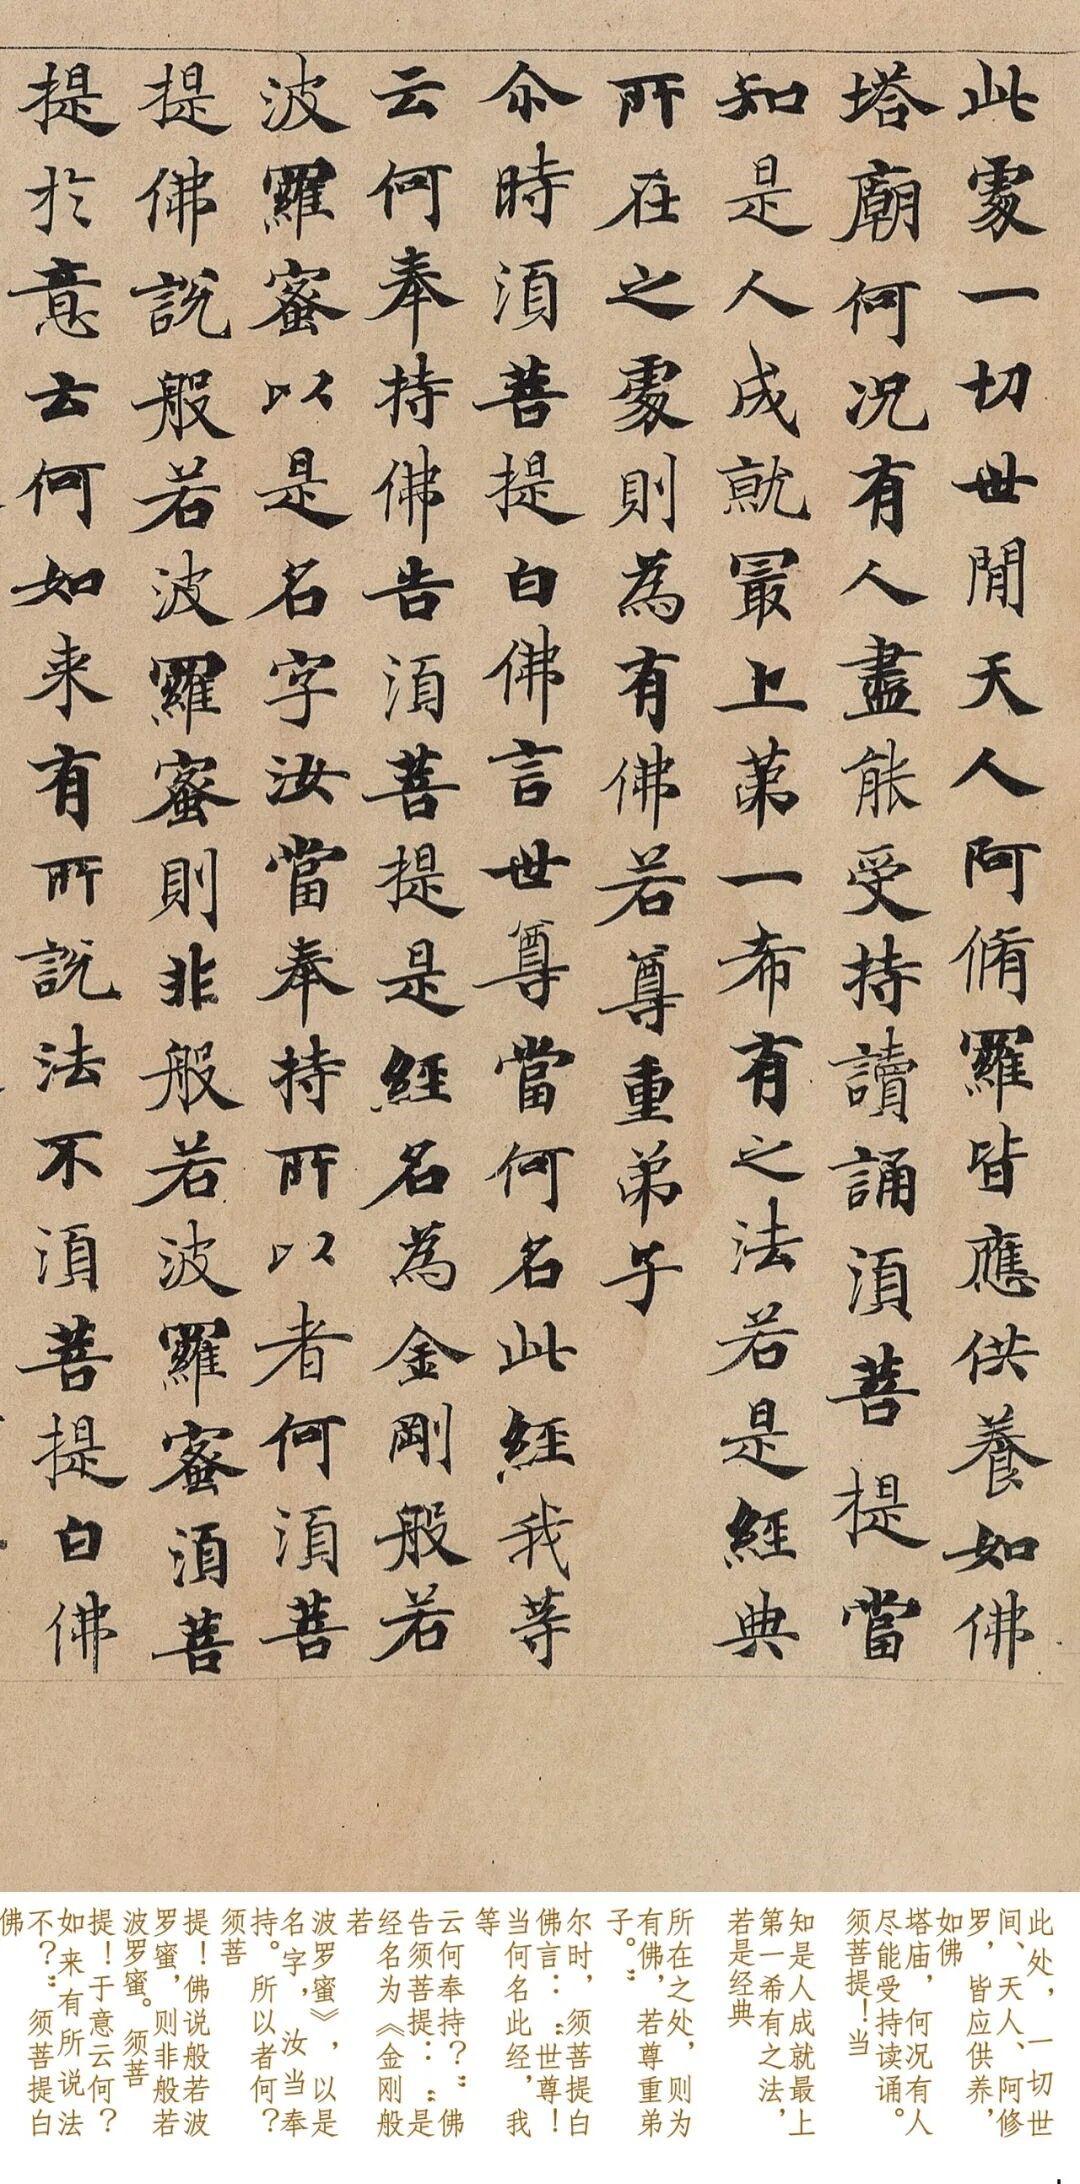 此處一切世間天人阿脩羅皆應供養如佛
塔廟何況有人盡能受持讀誦須菩提當
知是人成就冣上苐一希有之法若是經典
所在之處則為有佛若尊重弟子
尒時須菩提白佛言世尊當何名此經我等
云何奉持佛告須菩提是經名為金剛般若
波羅蜜以是名字汝當奉持所以者何須菩
提佛說般若波羅蜜則非般若波羅蜜須菩
提於意云何如来有所說法不須菩提白佛
此处，一切世
间、天人、阿修
罗，皆应供养，
如佛
塔庙，何况有人
尽能受持读诵。
须菩提！当
知是人成就最上
第一希有之法，
若是经典
所在之处，则为
有佛，若尊重弟
子。”
尔时，须菩提白
佛言：“世尊！
当何名此经，我
等
云何奉持？”佛
告须菩提：“是
经名为《金刚般
若
波罗蜜》，以是
名字，汝当奉
持。所以者何？
须菩
提！佛说般若波
罗蜜，则非般若
波罗蜜。须菩
提！于意云何？
如来有所说法
不？”须菩提白
佛